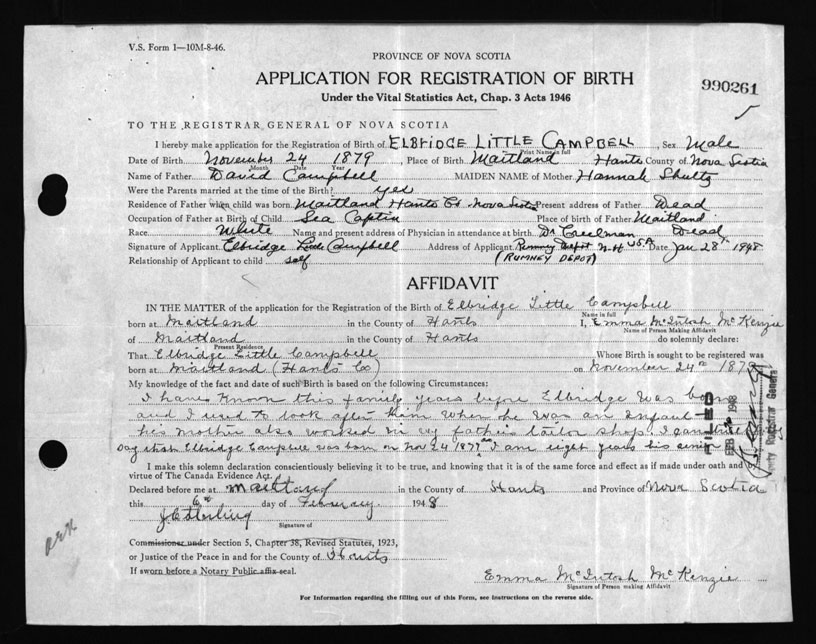 V.S. Form 1—10M-8-46.
PROVINCE OF NOVA SCOTIA
APPLICATION FOR REGISTRATION OF BIRTH
990261
Under the Vital Statistics Act, Chap. 3 Acts 1946
TO THE REGISTRAR GENERAL OF NOVA SCOTIA
I hereby make application for the Registration of Birth of ELBRIDGE LITTLE CAMPBELL, Sex Male
Print Name in full
Date of Birth November 24 1879, Place of Birth Maitland Hants County of Nova Scotia
Month Date Year
Name of Father David Campbell MAIDEN NAME of Mother Hannah Shultz
Were the Parents married at the time of the Birth? yes
Residence of Father when child was born Maitland Hants Co Nova Scotia Present address of Father Dead
Occupation of Father at Birth of Child Sea Captin Place of birth of Father Maitland
Race White Name and present address of Physician in attendance at birth Dr Creelman Dead
Signature of Applicant Elbridge Little Campbell Address of Applicant Rumney Depot N.H USA Date Jan 28th 1948
Relationship of Applicant to child self (RUMNEY DEPOT)
AFFIDAVIT
IN THE MATTER of the application for the Registration of the Birth of Elbridge Little Campbell
Name in full
born at Maitland in the County of Hants I, Emma McIntosh McKenzie
Name of Person Making Affidavit
of Maitland in the County of Hants do solemnly declare:
Present Residence
That Elbridge Little Campbell Whose Birth is sought to be registered was
born at Maitland (Hants Co) on November 24th 1879
My knowledge of the fact and date of such Birth is based on the following Circumstances:
I have known this family years before Elbridge was born
and I used to look after him when he was an infant
his mother also worked in my fathers tailor shop. I can
Elbridge Campbell was born on Nov 24 1879 I am eight years his senior
FILED
FEB 1948
Deputy Registrar General
I make this solemn declaration conscientiously believing it to be true, and knowing that it is of the same force and effect as if made under oath and
virtue of The Canada Evidence Act.
Declared before me at Maitland in the County of Hants and Province of Nova Scotia
this 6th day of February 1948
Signature of
Commissioner under Section 5, Chapter 38, Revised Statutes, 1923,
or Justice of the Peace in and for the County of Hants
If sworn before a Notary Public affix seal.
Emma McIntosh McKenzie
Signature of Person making Affidavit
For Information regarding the filling out of this Form, see instructions on the reverse side.